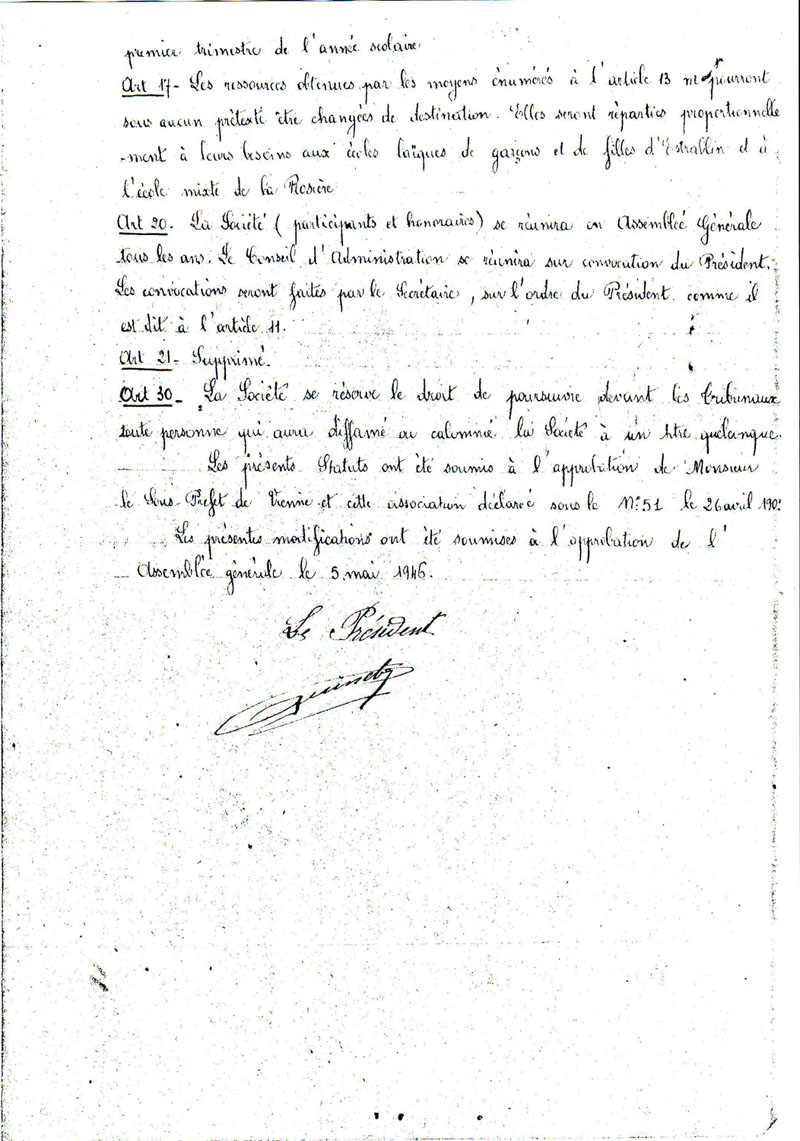 premier trimestre de l'année scolaire
Art 17- Les ressources obtenues par les moyens énumérés à l'article 13 ne pourront
sous aucun prétexte être changées de destination. Elles seront réparties proportionnelle
-ment à leurs besoins aux écoles laïques de garçons et de filles d'Estrablin et à
l'école mixte de la Rosière
Art 20. La Société ( participants et honoraires) se réunira en Assemblée Générale
tous les ans. Le Conseil d'Administration se réunira sur convocation du Président.
Les convocations seront faites par le Secrétaire, sur l'ordre du Président comme il
est dit à l'article 11.
Art 21- Supprimé.
Art 30- La Société se réserve le droit de poursuivre devant les tribunaux
toute personne qui aura diffamé ou calomnié la Société à un titre quelconque.
Les présents Statuts ont été soumis à l'approbation de Monsieur
le Sous-Préfet de Vienne et cette association déclarée sous le N°51 le 26 avril
Les présentes modifications ont été soumises à l'approbation de l'
Assemblée générale le 5 mai 1946.
Le Président